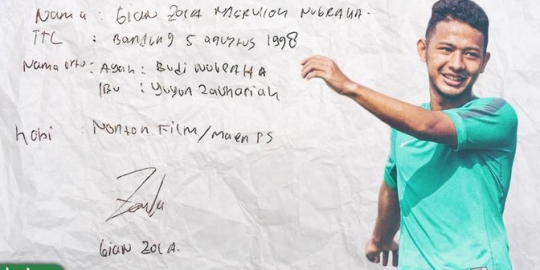 Nama : GIAN ZOLA NASRULLOH NUGRAHA.
TTL : Bandung 5 agustus 1998
Nama ortu : Ayah : Budi NUGRAHA
Ibu : Yuyun Zachariah
hobi Nonton Film/maen PS
GIAN ZOLA.